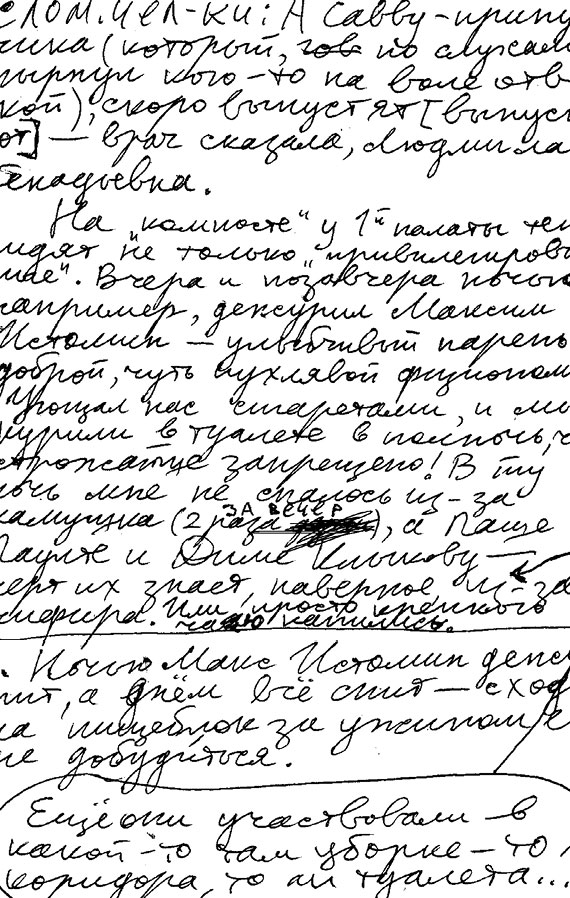 слом. чел-ки: А Савву-припу
чика (который, по слухам
пырнул кого-то на воле отв
кой), скоро выпустят [выпус
от] — врач сказала, Людмила
Генадьевна.
На „компосте" у 1й палаты теп
сидят не только „привилегиров
ные". Вчера и позавчера ночью
например, дежурил Максим
Истомин — улыбчивый парень
доброй, чуть пухлявой физионом
Угощал нас сигаретами, и мы
курили в туалете в полночь, ч
строжайше запрещено! В ту
ночь мне не спалось из-за
камушка (2 раза ЗА ВЕЧЕР), а Паше
Паулте и Диме Клыкову —
черт их знает, наверное, из-за
чифира. Или просто крепкого
чаю напились.
. Ночью Макс Истомин деж
рит, а днём всё спит — сход
на пищеблок за ужином е
не добудиться.
Ещё они участвовали в
какой-то там уборке — то
коридора, то ли туалета...